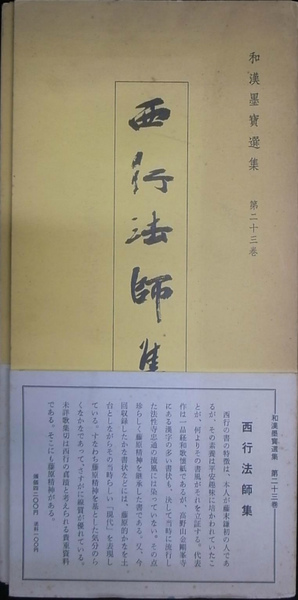 和漢墨寶選集 第二十三巻
西行法師集
和漢墨寶選集 第二十三巻
西行法師集
西行の書の特徴は、本人が藤末鎌初の人であ
るが、その素養は平安極末に培かわれていたこ
とが、何よりその書風がそれを立証する。代表
作は一品経和歌懐紙であるが、高野山金剛峯寺
にある漢字の多い書状も、決して当時に流行し
た法性寺忠通の流風には染っていない。その点
珍らしく藤原精神を継承した書である。又、今
回収録した仮名書状などには、藤原的かなを土
台としながらその当時らしい「現代」を表現し
ている。すなわち藤原精神を基とした気分のら
くなかなであって、さすがに綴賛が優れている。
未詳歌集切は西行の真蹟と考えられる貴重資料
である。そこにも藤原精神がある。
頒価四二〇〇円 送料一〇〇円